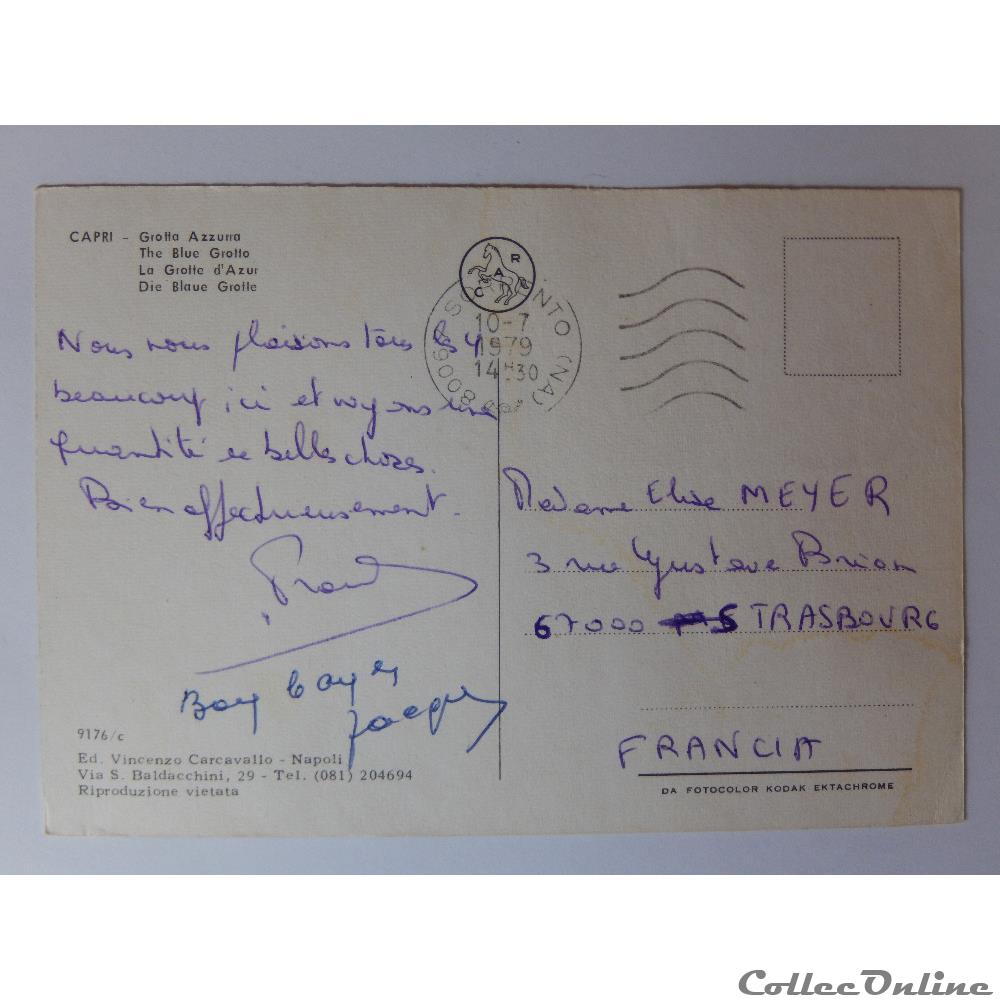 CAPRI - Grotta Azzurra
The Blue Grotto
La Grotte d'Azur
Die Blaue Grotte
Nous nous plaisons tous les 4
beaucoup ici et voyons une
quantité de belles choses.
Bien affectueusement.
9176/c
Ed. Vincenzo Carcavallo - Napoli
Via S. Baldacchini, 29 - Tel. (081) 204694
Riproduzione vietata
CAR
80067 SORRENTO (NA)
10-7
1979
14H30
Madame Elise MEYER
3 rue Gustave Brion
67000 STRASBOURG
FRANCIA
DA FOTOCOLOR KODAK EKTACHROME
CollecOnline